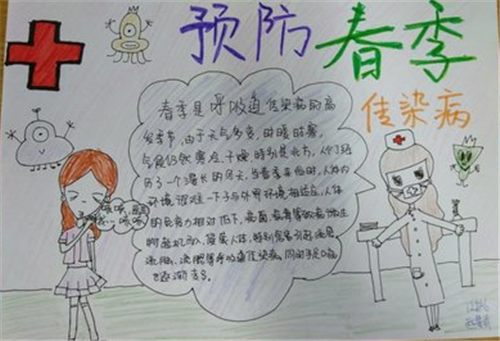 预防春季
传染病
春季是呼吸道传染病的高
发季节,由于天气多变,时暖时寒,
气候仍然寒冷、干燥特别是北方,人们经
历了一个漫长的冬天,当春季来临时,人体内
环境很难一下子与外界环境相适应,人体
的免疫力相对低下,
微生
物趁机而入,侵袭人体,特别容易引起流感
流脑、
等呼吸道传染病,同时手足口病
也逐渐
咳咳,
咳咳